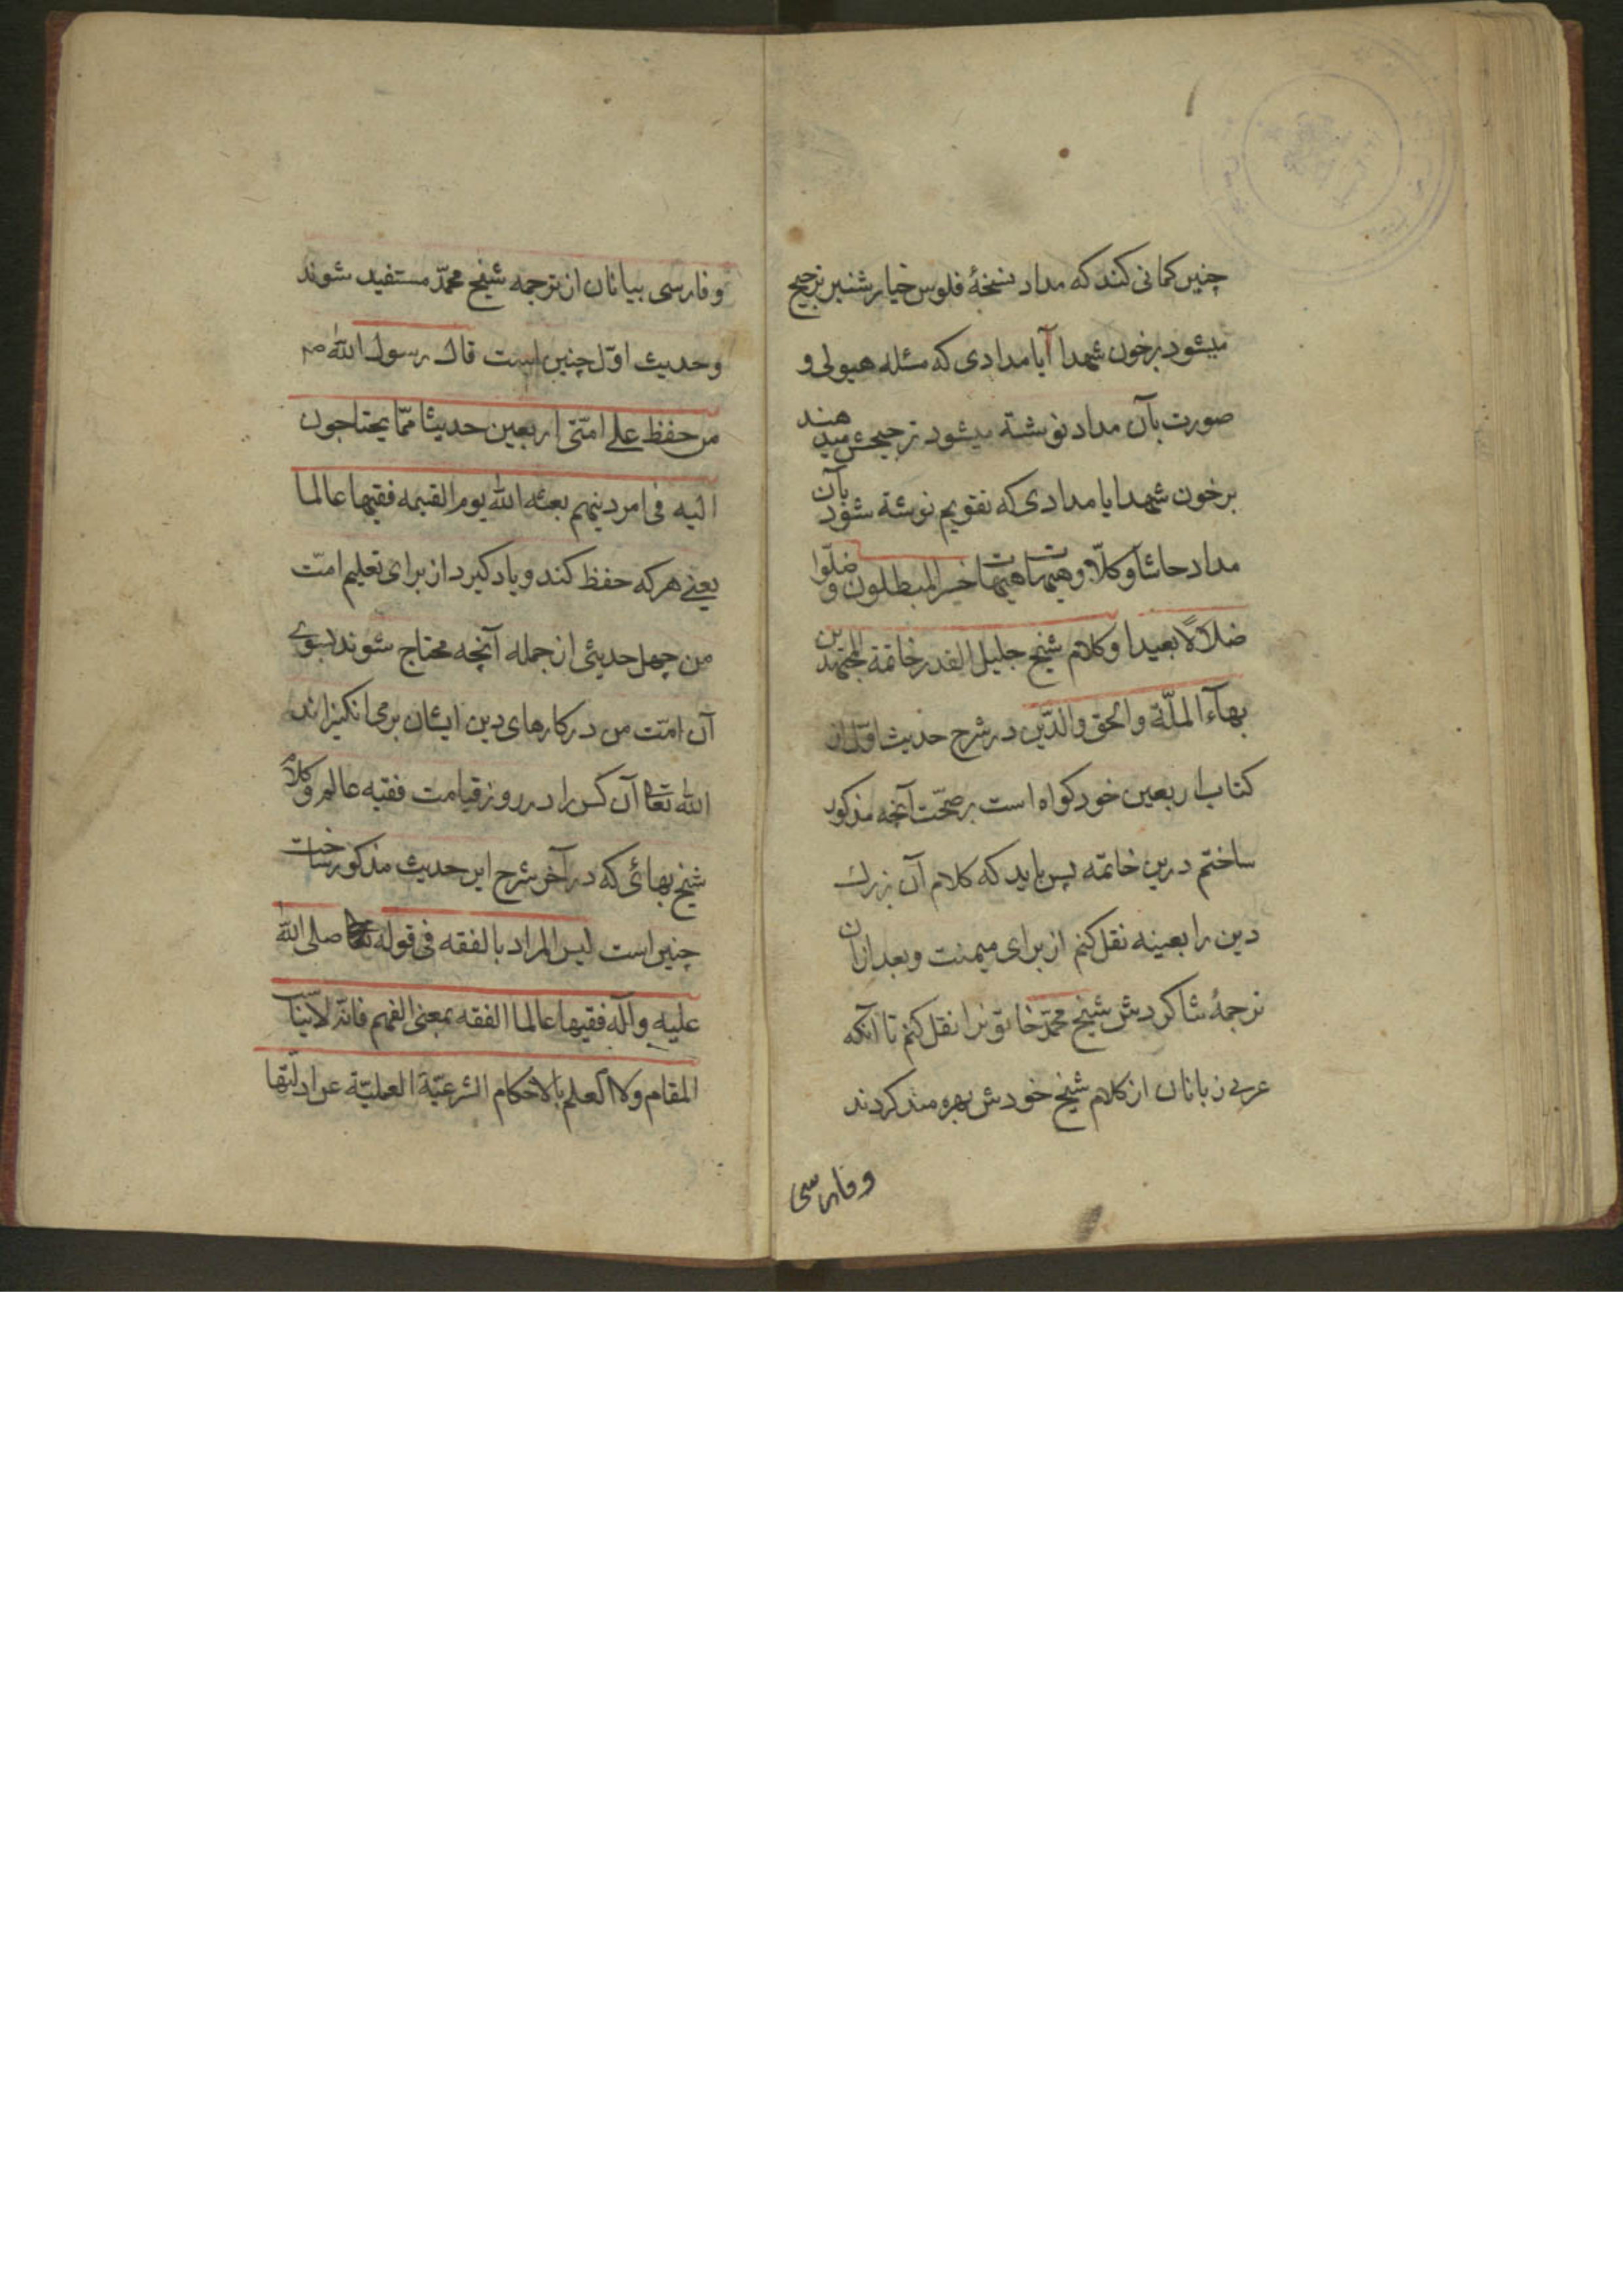 چنین کمانی کند که مداد نسخهٔ فلوس خیار شنبر ترجیح
میشود برخون شهدا آیا مدادی که مسئله هیولی و
صورت بآن مداد نوشتة میشود ترجیحش میدهند
برخون شهدا یا مدادی که تقویم نوشتة شود بآن
مداد حاشا وکلّا وهیهات هیهات خسر المبطلون وضلّوا
ضلالاً بعیدا وکلام شیخ جلیل القدر خاتمة المجتهدین
بهآء الملّة والحق والدّین در شرح حدیث اوّل از
کتاب اربعین خود کواه است بر صحّت آنچه مذکور
ساختم درین خاتمه پس باید که کلام آن بزرك
دین را بعینه نقل کنم از برای میمنت وبعد ازان
ترجمهٔ شاکردش شیخ محمّد خاتونرا نقل کنم تا آنکه
عربی زبانان از کلام شیخ خودش بهره مند کردند
وفارسی
وفارسی بیانان از ترجمه شیخ محمّد مستفید شوند
وحدیث اوّل چنین است قال رسول اللّه ص
من حفظ علی امّتی اربعین حدیثا ممّا یحتاجون
الیه فی امر دینهم بعثه اللّه یوم القیمه فقیها عالما
یعنی هرکه حفظ کند و یاد کیرد از برای تعلیم امّت
من چهل حدیثی از جمله آنچه محتاج شوند بسوی
آن امّت من در کارهای دین ایشان برمی انکیزاند
اللّه تعا آن کس را در روز قیامت فقیه عالم وکلام
شیخ بهائی که در آخر شرح این حدیث مذکور ساخت
چنین است لیس المراد بالفقه فی قوله صلی اللّه
علیه وآله فقیها عالما الفقه بمعنی الفهم فانّه لا یناسب
المقام ولا العلم بالاحکام الشرعیّة العملیّة عن ادلّتها